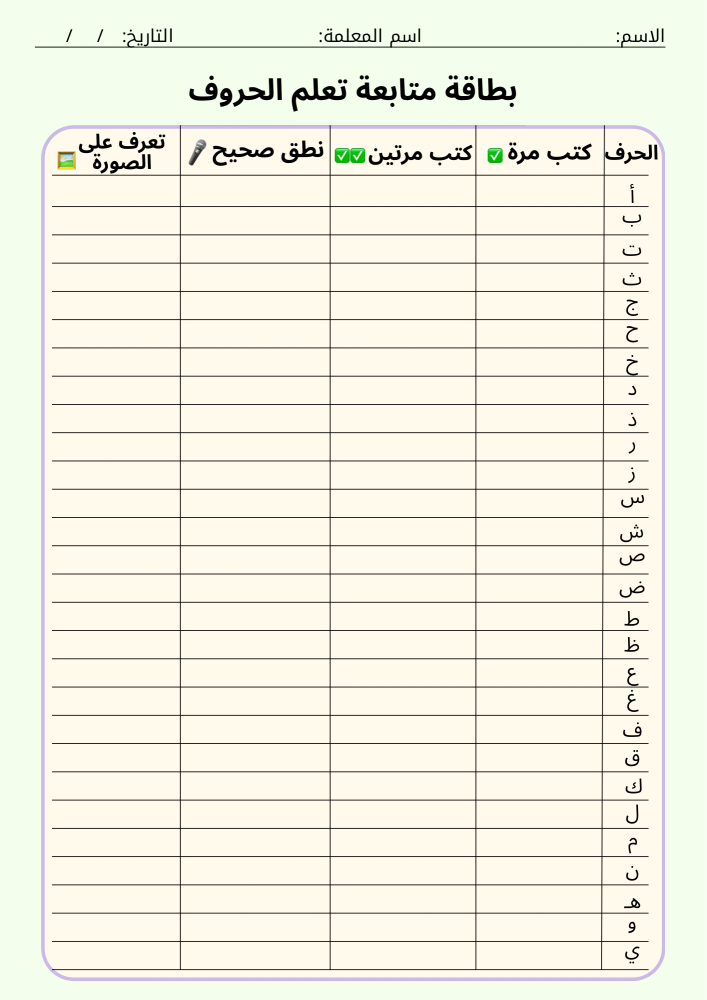 الاسم: اسم المعلمة: التاريخ: / /
بطاقة متابعة تعلم الحروف
الحرف كتب مرة ✅ كتب مرتين ✅✅ نطق صحيح 🎤 تعرف على الصورة 🖼️
أ
ب
ت
ث
ج
ح
خ
د
ذ
ر
ز
س
ش
ص
ض
ط
ظ
ع
غ
ف
ق
ك
ل
م
ن
هـ
و
ي